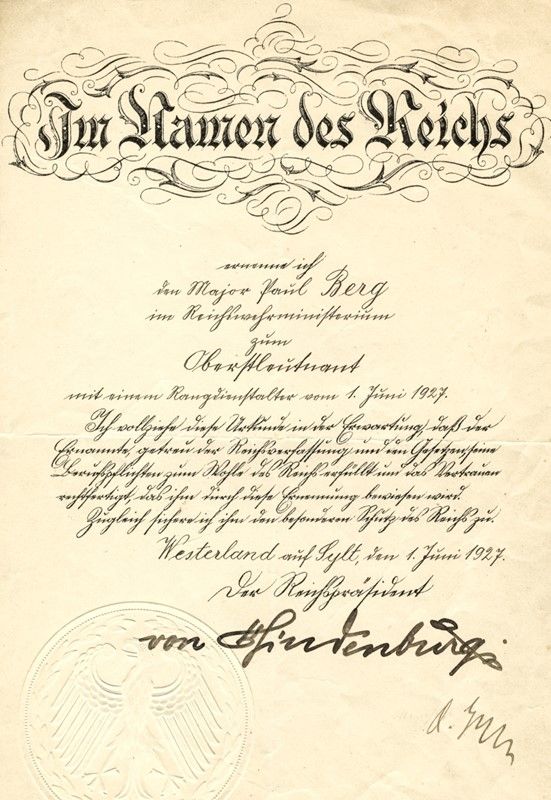 Im Namen des Reichs
ernenne ich
den Major Paul Berg
im Reichswehrministerium
zum
Oberstleutnant
mit einem Rangdienstalter vom 1. Juni 1927.
Ich vollziehe diese Urkunde in der Erwartung, daß der
Ernannte, getreu der Reichsverfassung und den Gesetzen seine
Berufspflichten zum Wohle des Reichs erfüllt und das Vertrauen
rechtfertigt, das ihm durch diese Ernennung bewiesen wird.
Zugleich sichere ich ihm den besonderen Schutz des Reichs zu.
Westerland auf Sylt, den 1. Juni 1927.
Der Reichspräsident
von Hindenburg